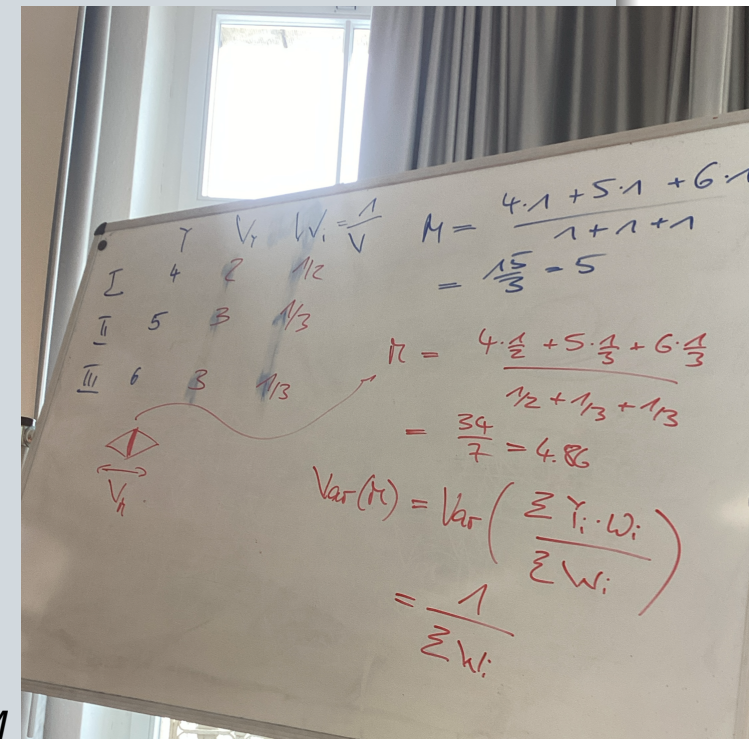 Y V_Y W_i = 1/V
I 4 2 1/2
II 5 3 1/3
III 6 3 1/3
V_M
M = (4·1 + 5·1 + 6·1)/(1 + 1 + 1)
= 15/3 = 5
M = (4·1/2 + 5·1/3 + 6·1/3)/(1/2 + 1/3 + 1/3)
= 34/7 = 4.86
Var(M) = Var(Σ Y_i·W_i / Σ W_i)
= 1/Σ W_i